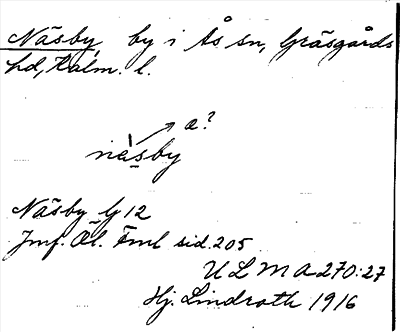 Näsby, by i Ås sn, Gräsgårds
hd, Kalm. l.
a?
nä̀sby
Näsby G 12
Jmf. Öl. Fml sid. 205
ULMA 270:27
Hj. Lindroth 1916